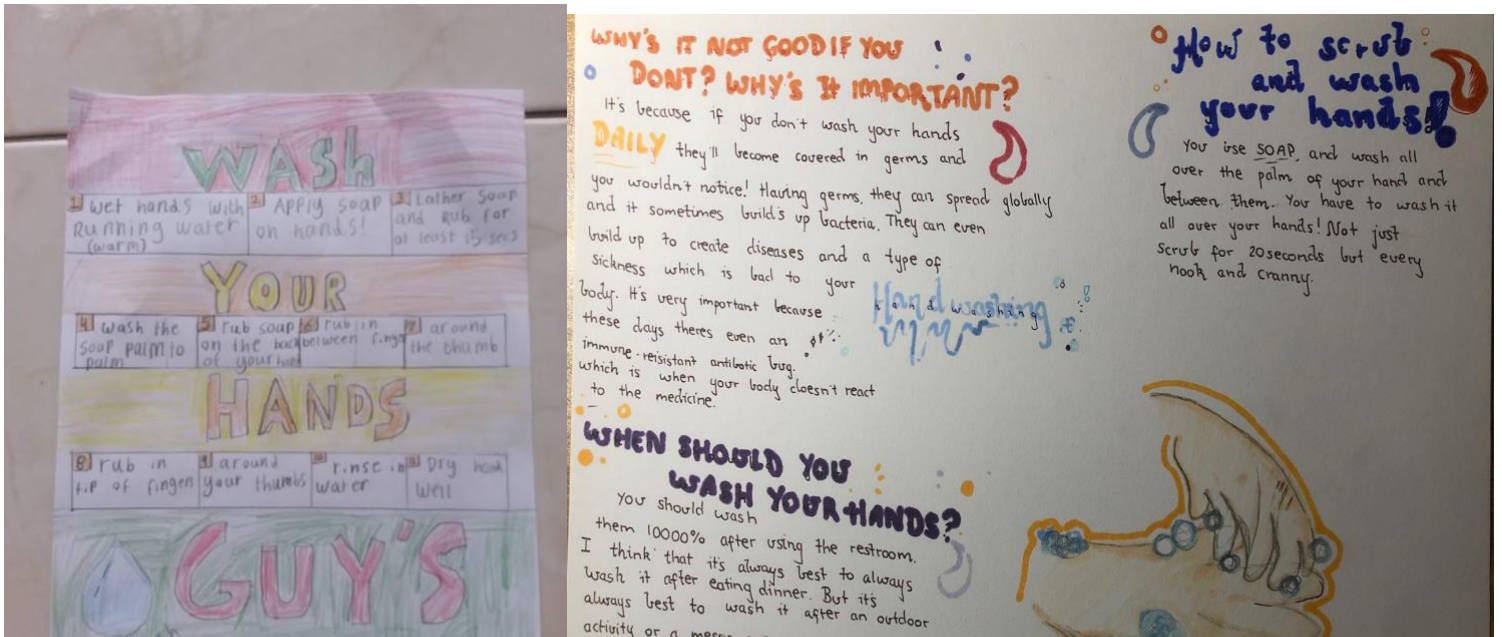 WASH
1 Wet hands with Running water (warm)
2 Apply soap on hands!
3 Lather Soap and Rub for at least 15 secs
YOUR
4 wash the soap palm to palm
5 rub soap on the back of your hand
6 rub in between fings
7 around the thumb
HANDS
8 rub in tip of fingen
9 around your thumbs
10 rinse in water
11 Dry hank well
GUY'S
WHY'S IT NOT GOOD IF YOU
DONT? WHY'S It IMPORTANT?
It's because if you don't wash your hands
DAILY they'll become covered in germs and
you wouldn't notice! Having germs, they can spread globally
and it sometimes build's up bacteria. They can even
build up to create diseases and a type of
sickness which is bad to your
body. It's very important because
these days theres even an
immune-reisistant antibiotic bug.
which is when your body doesn't react
to the medicine.
Handwashing
handwashing
WHEN SHOULD YOU
WASH YOUR HANDS?
You should wash
them 10000% after using the restroom.
I think that it's always best to always
wash it after eating dinner. But it's
always best to wash it after an outdoor
activity or a
How to scrub
and wash
your hands!
You use SOAP, and wash all
over the palm of your hand and
between them. You have to wash it
all over your hands! Not just
scrub for 20seconds but every
nook and cranny.